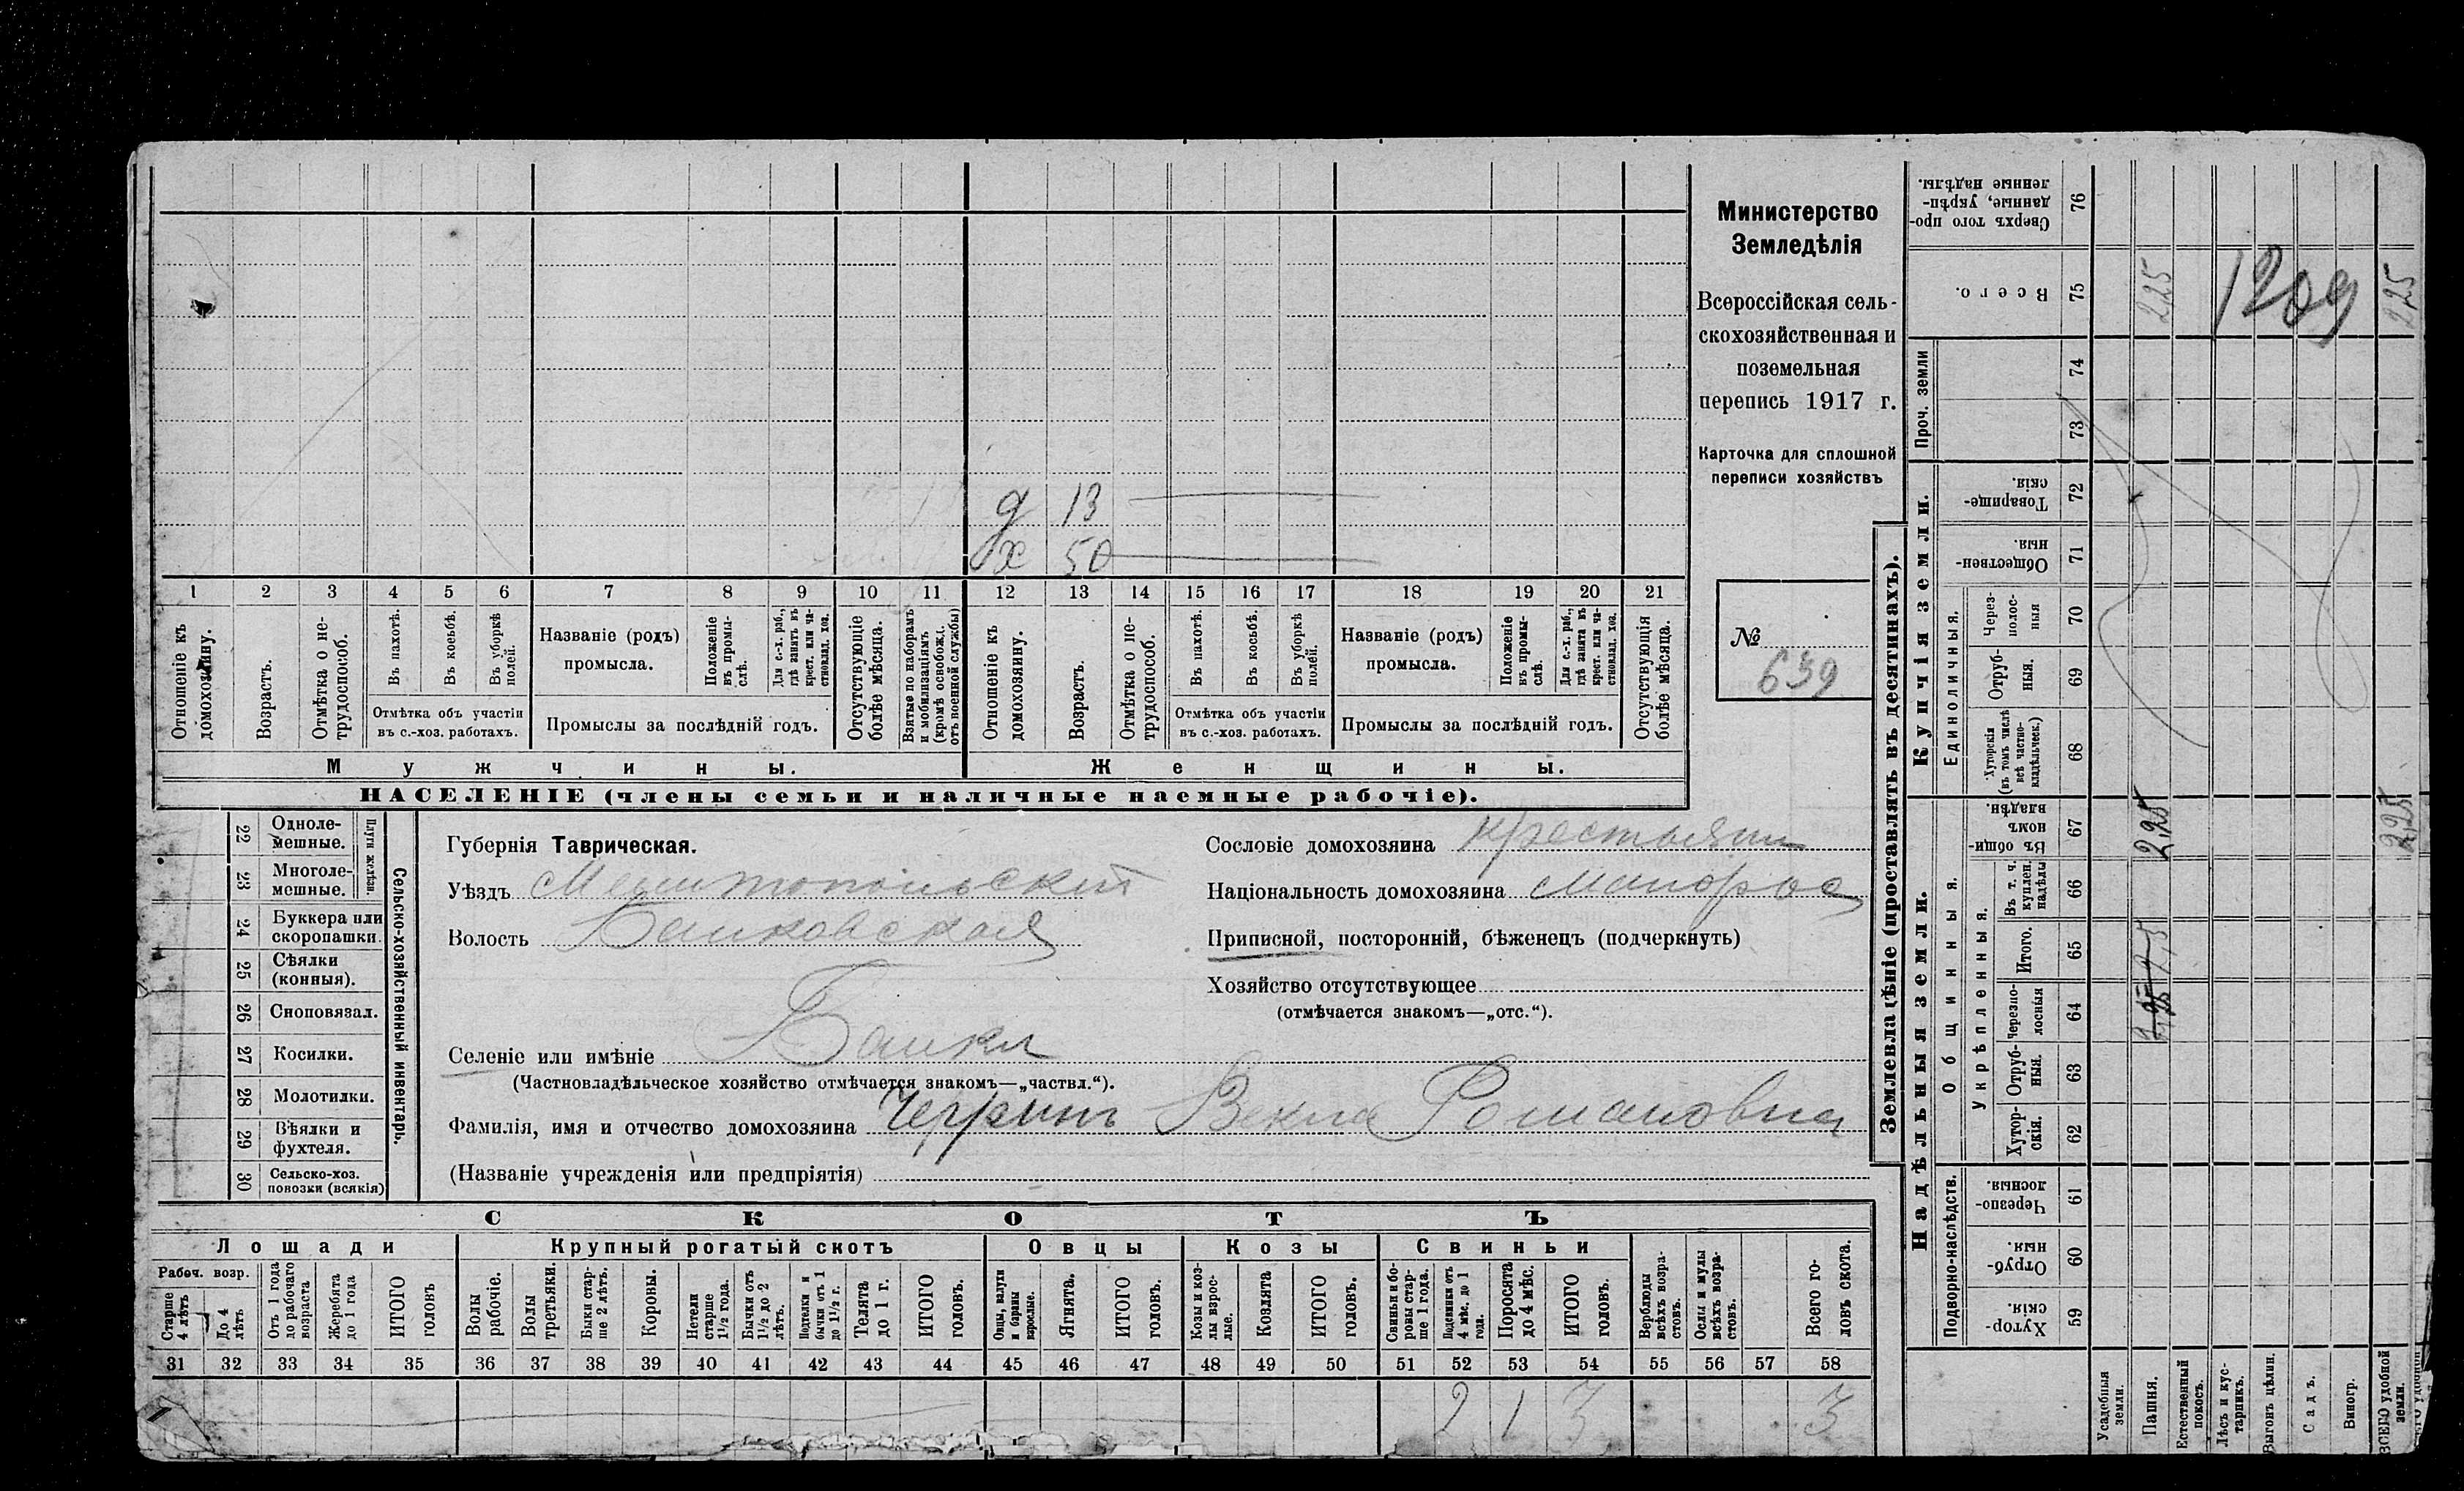 д 13
х 50
1 2 3 4 5 6 7 8 9 10 11 12 13 14 15 16 17 18 19 20 21
Отношеніе къ домохозяину.
Возрастъ.
Отмѣтка о не-трудоспособ.
Въ пахотѣ.
Въ косьбѣ.
Въ уборкѣ полей.
Отмѣтка объ участіи
въ с.-хоз. работахъ.
Названіе (родъ)
промысла.
Положеніе въ промы-слѣ.
Для с.-х. раб., гдѣ занятъ въ крест. или ча-стновлад. хоз.
Промыслы за послѣдній годъ.
Отсутствующіе болѣе мѣсяца.
Взятые по наборамъ и мобилизаціямъ (кромѣ освобожд. отъ военной службы)
Отношеніе къ домохозяину.
Возрастъ.
Отмѣтка о не-трудоспособ.
Въ пахотѣ.
Въ косьбѣ.
Въ уборкѣ полей.
Отмѣтка объ участіи
въ с.-хоз. работахъ.
Названіе (родъ)
промысла.
Положеніе въ промы-слѣ.
Для с.-х. раб., гдѣ занята въ крест. или ча-стновлад. хоз.
Промыслы за послѣдній годъ.
Отсутствующія болѣе мѣсяца.
Мужчины. Женщины.
НАСЕЛЕНІЕ (члены семьи и наличные наемные рабочіе).
Министерство
Земледѣлія
Всероссійская сель-
скохозяйственная и
поземельная
перепись 1917 г.
Карточка для сплошной
переписи хозяйствъ
№
639
Сельско-хозяйственный инвентарь.
Плуги желѣзн.
22 Одноле-мешные.
23 Многоле-мешные.
24 Буккера или скоропашки.
25 Сѣялки (конныя).
26 Сноповязал.
27 Косилки.
28 Молотилки.
29 Вѣялки и фухтеля.
30 Сельско-хоз. повозки (всякія)
Губернія Таврическая.
Уѣздъ Мелитопольскій
Волость Балковская
Селеніе или имѣніе Балки
(Частновладѣльческое хозяйство отмѣчается знакомъ—„частвл.“).
Фамилія, имя и отчество домохозяина Романовна
(Названіе учрежденія или предпріятія)
Сословіе домохозяина крестьянин
Національность домохозяина Малорос
Приписной, посторонній, бѣженецъ (подчеркнуть)
Хозяйство отсутствующее
(отмѣчается знакомъ—„отс.“).
СКОТЪ
Лошади
Крупный рогатый скотъ
Овцы
Козы
Свиньи
Рабоч. возр.
Старше 4 лѣтъ
До 4 лѣтъ
Отъ 1 года до рабочаго возраста
Жеребята до 1 года
ИТОГО головъ
Волы рабочіе.
Волы третьяки.
Быки стар-ше 2 лѣтъ.
Коровы.
Нетели старше 1½ года.
Бычки отъ 1½ до 2 лѣтъ.
Подтелки и бычки отъ 1 до 1½ г.
Телята до 1 г.
ИТОГО головъ.
Овцы, валухи и бараны взрослые.
Ягнята.
ИТОГО головъ.
Козы и коз-лы взрос-лые.
Козлята
ИТОГО головъ.
Свиньи и бо-ровы стар-ше 1 года.
Подсвинки отъ 4 мѣс. до 1 года.
Поросята до 4 мѣс.
ИТОГО головъ.
Верблюды всѣхъ возра-стовъ.
Ослы и мулы всѣхъ возра-стовъ.
Всего го-ловъ скота.
31 32 33 34 35 36 37 38 39 40 41 42 43 44 45 46 47 48 49 50 51 52 53 54 55 56 57 58
2 1 3 3
Землевладѣніе (проставлять въ десятинахъ).
Надѣльныя земли.
Купчія земли.
Проч. земли
Подворно-наслѣдств.
Общинныя.
Укрѣпленныя.
Единоличныя.
Хутор-скія. 59
Отруб-ныя. 60
Черезпо-лосныя. 61
Хутор-скія. 62
Отруб-ныя. 63
Черезпо-лосныя 64
Итого. 65
Въ т. ч. куплен. надѣлы 66
Въ общин-номъ владѣн. 67
Хуторскія (въ томъ числѣ всѣ частно-владѣльческ.) 68
Отруб-ныя. 69
Через-полос-ныя 70
Обществен-ныя. 71
Товарище-скія. 72
73
74
Всего. 75
Сверхъ того про-данные, укрѣп-ленные надѣлы. 76
Усадебныя земли.
Пашня.
Естественный покосъ.
Лѣсъ и кус-тарникъ.
Выгонъ цѣлин.
Садъ.
Виногр.
ВСЕГО удобной земли.
2,25
2,25
2,25
2,25
1209